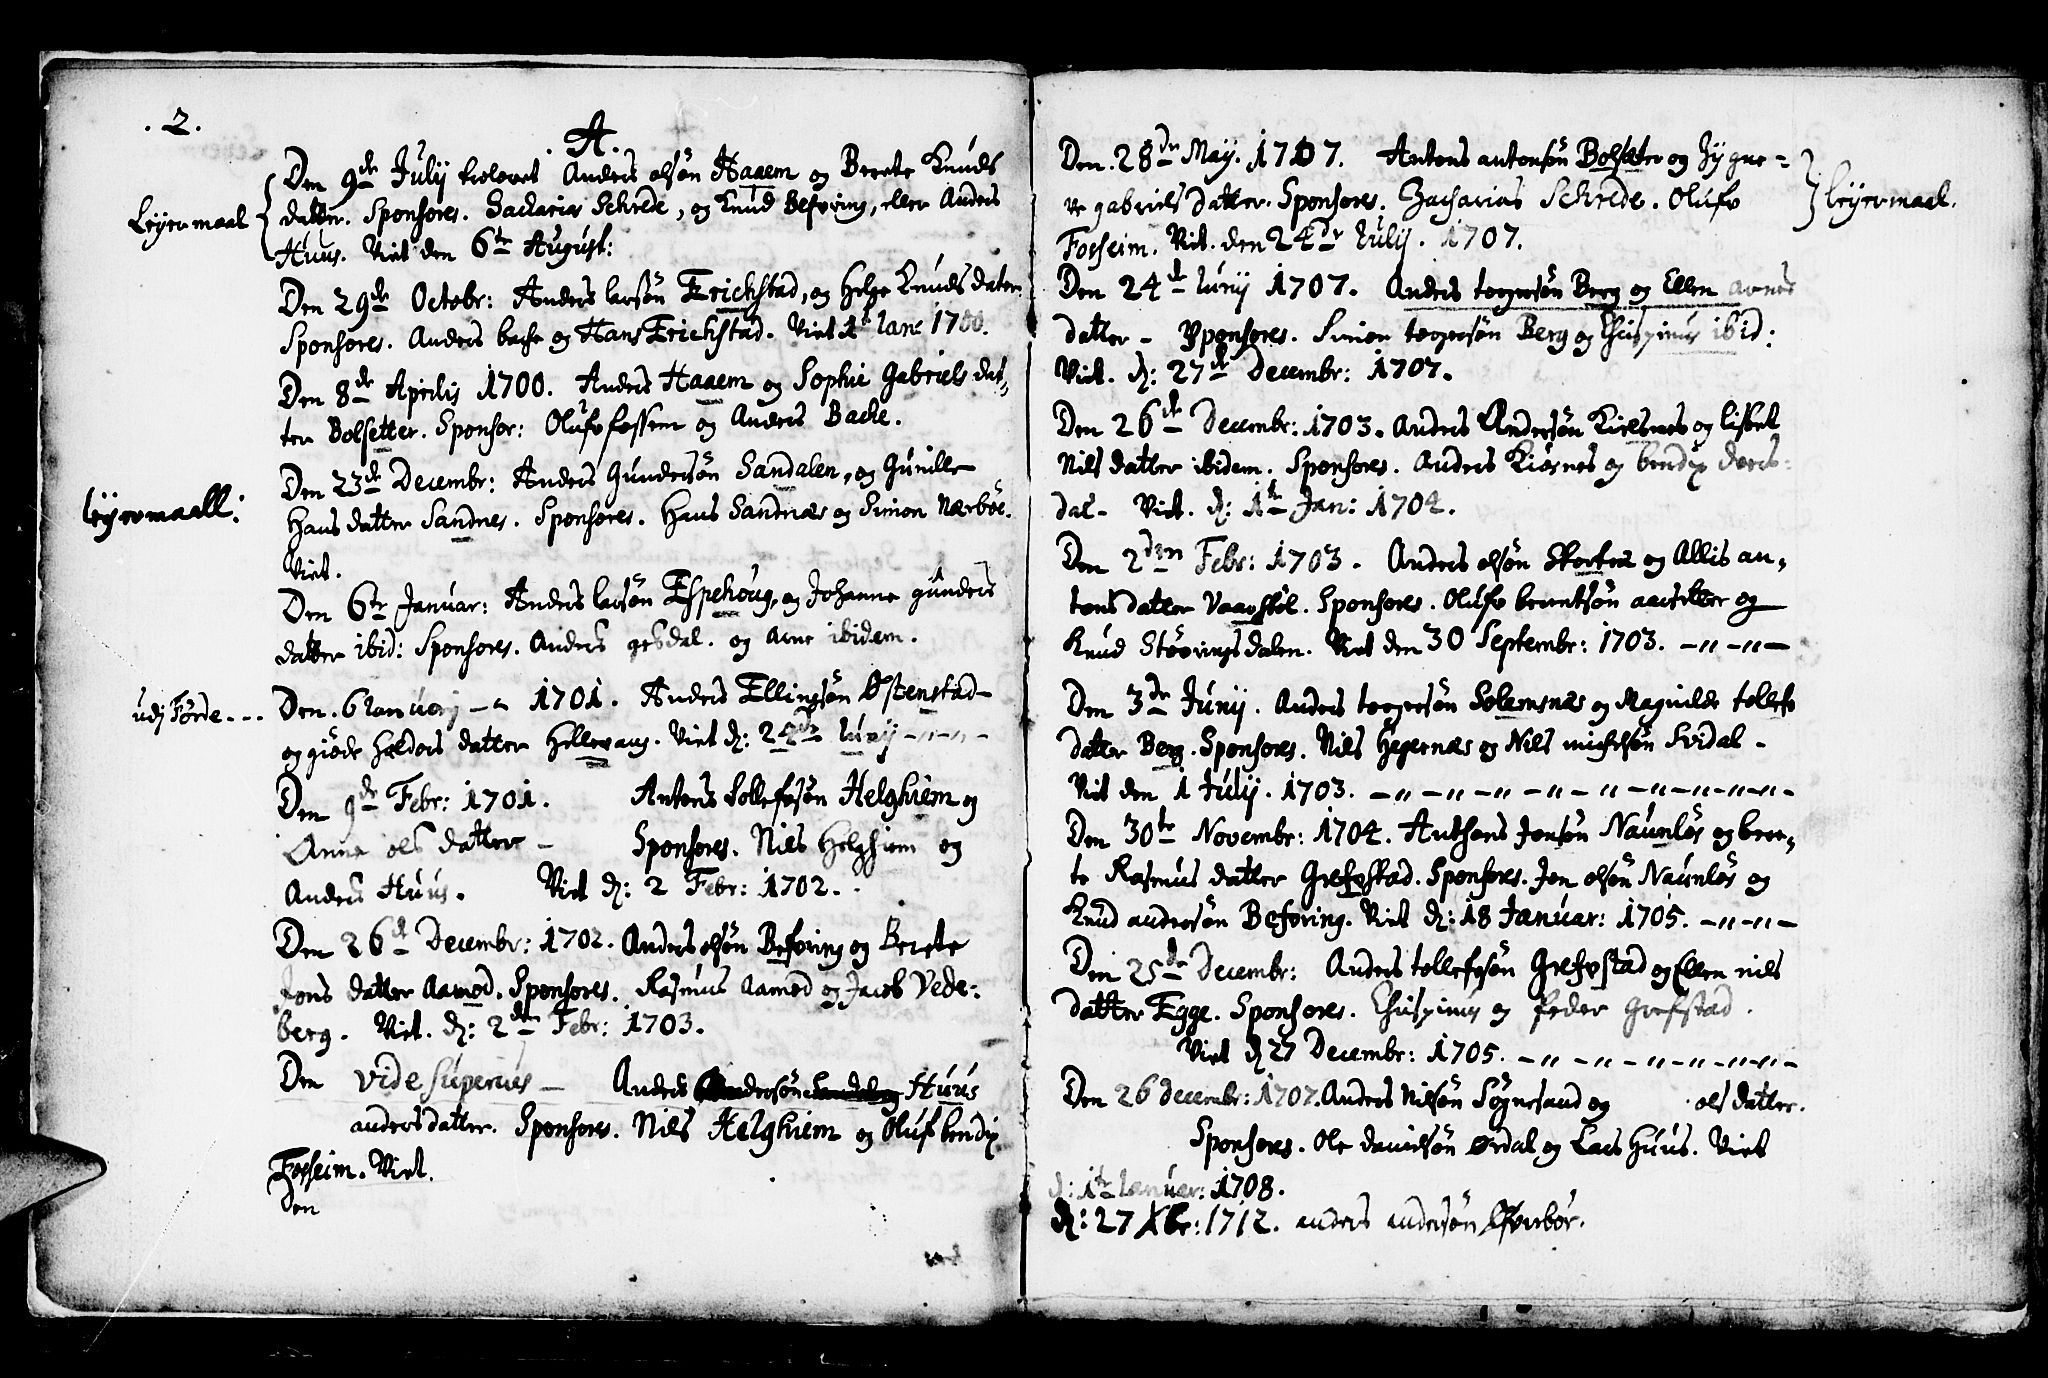 .2.
A.
Den 9de Julij trolovet Anders olsön Haaem og Berete Knuds
Leijermaal
datter. Sponsores. Zacharias Schrede, og Knud Befring, eller Anders
Huus. Viet den 6te August:
Den 29de Octobr: Anders larsön Erichstad, og Helge Knuds dater
Sponsores. Anders bache og Hans Erichstad. Viet 1t Jan: 1700.
Den 8de Aprilis 1700. Anders Haaem og Sophie Gabriels dat-
ter Bolsetter. Sponsor: Olufv fossem og Anders Bache.
Den 23de Decembr: Anders Gundersön Sandalen, og Gunille
leijermaall:
Hans datter Sandnes. Sponsores. Hans Sandnæs og Simon Nærböe.
Viet.
Den 6te Januar: Anders larsön Espehoug, og Johanne gunders
datter ibid: Sponsores. Anders gesdal. og Arne ibidem.
udj Førde---
Den. 6 Januarij — 1701. Anders Ellingsön Østenstad
og giöde halдors datter Hellevang. Viet d: 24de Junij
Den 9de Febr: 1701. Antons tollefsön Helghiem og
Anne ols datter — Sponsores. Nils Helghiem og
Anders Huus. Viet d: 2 Febr: 1702.
Den 26de Decembr: 1702. Anders olsön Befring og Berete
Jons datter Aamod. Sponsores. Rasmus Aamod og Jacob Vede-
berg. Viet. d: 2den Febr: 1703.
Den vide superius — Anders Andersön Huus
anders datter. Sponsores. Nils Helghiem og Oluf bendix
Forseim. Viet.
Den
Den. 28de Maij. 1707. Antons antonsön Bolsæter og Zygne-
ve gabriels datter. Sponsores. Zacharias Schrede. Olufv
Leijermaal.
Forseim. Viet. den 24de Julij. 1707.
Den 24de Junij 1707. Anders torgersön Berg og Ellen arnes
datter - Sponsores. Simon torgersön Berg og Chrispinus ibid:
Viet. d: 27de Decembr: 1707.
Den 26de Decembr: 1703. Anders Andersön Kiörsnes og lisbet
Nils datter ibidem. Sponsores. Anders Kiörnes og bendix
dal- Viet. d: 1te Jan: 1704.
Den 2den Febr: 1703. Anders olsön Skortea og Allis an-
tons datter Vaarstöl. Sponsores. Olufv berentsön aasetter og
Knud Stövringsdalen. Viet den 30 Septembr: 1703. —"—"—
Den 3de Junij. Anders torgersön Solemsnæs og Magnilde tollefs
datter Berg. Sponsores. Nils Hegernæs og Nils michelsön Svidal-
Viet den 1 Julij. 1703. —"—"—"—"—"—"—"—"—
Den 30te Novembr: 1704. Anthons Jonsön Naunlös og bere-
te Rasmus datter Grefstad. Sponsores. Jon olsön Naunlös og
Knud andersön Befring. Viet d: 18 Januar: 1705. —"—"—
Den 25de Decembr: Anders tollefsön Grefstad og Ellen nils
datter Egge. Sponsores. Chrispinus og Peder Grefstad.
Viet d 27 Decembr: 1705. —"—"—"—"—"—"—
Den 26 decembr: 1707. Anders Nilsön Sögnesand og ols datter.
Sponsores. Ole davidsön Ørdal og Lars Huus. Viet
d: 1te Januar: 1708.
d: 27 Xbr: 1712. anders andersön